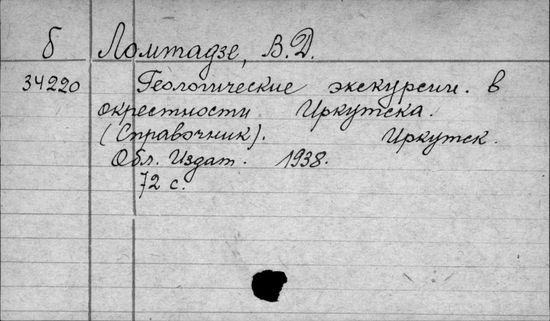 б Ломтадзе, В.Д.
34220 Геологические экскурсии. в
окрестности Иркутска.
(Справочник). Иркутск.
Обл. Издат. 1938.
72 с.